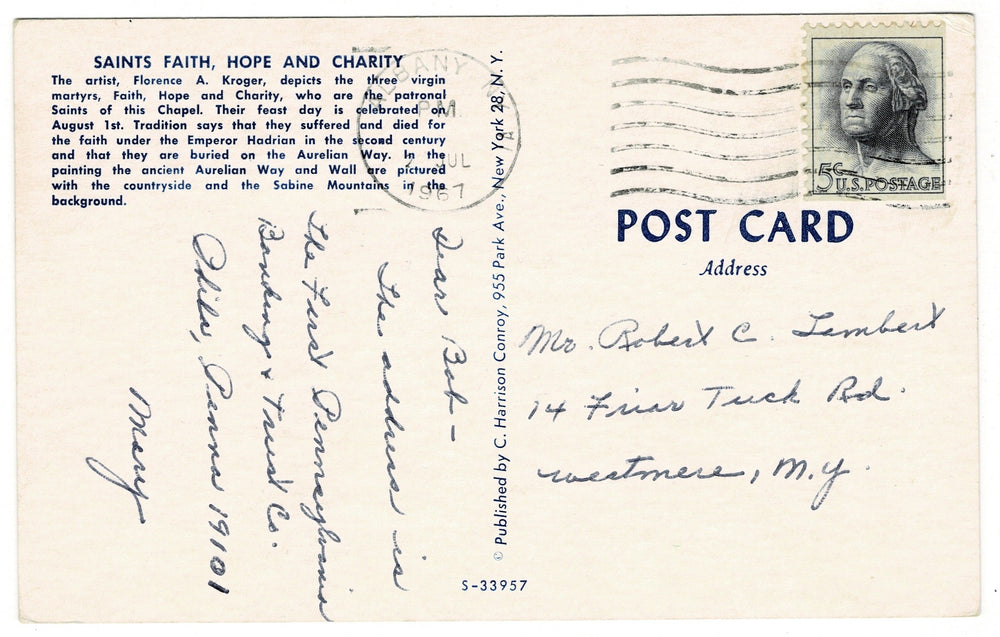 SAINTS FAITH, HOPE AND CHARITY
The artist, Florence A. Kroger, depicts the three virgin
martyrs, Faith, Hope and Charity, who are the patronal
Saints of this Chapel. Their feast day is celebrated on
August 1st. Tradition says that they suffered and died for
the faith under the Emperor Hadrian in the second century
and that they are buried on the Aurelian Way. In the
painting the ancient Aurelian Way and Wall are pictured
with the countryside and the Sabine Mountains in the
background.
Dear Bob-
The address is
The First Pennsylvania
Banking & Trust Co.
Phila, Penna 19101
Mary
© Published by C. Harrison Conroy, 955 Park Ave., New York 28, N.Y.
S-33957
ALBANY N.Y.
P.M.
JUL
1967
5c U.S. POSTAGE
POST CARD
Address
Mr. Robert C. Lembert
14 Friar Tuck Rd.
Westmere, N.Y.